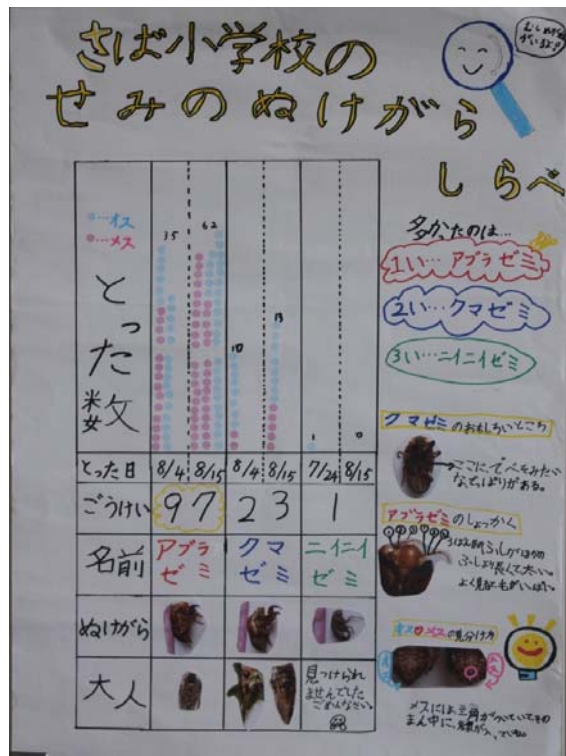 さば小学校の
せみのぬけがら
しらべ
むしめがね
オス
メス
とった数
35
62
10
13
1
0
とった日
8/4
8/15
8/4
8/15
7/24
8/15
ごうけい
97
23
1
名前
アブラゼミ
クマゼミ
ニイニイゼミ
ぬけがら
大人
見つけられ
ませんでした
ごめんなさい。
多かったのは…
1い…アブラゼミ
2い…クマゼミ
3い…ニイニイゼミ
クマゼミのおもしろいところ
ここにでべそみたい
なでっぱりがある。
アブラゼミのしょっかく
ふしがほかの
ふしより長くて太い。
よく見ると毛がいっぱい。
オスメスの見分け方
オス
メス
メスには三角がついていてその
まん中に、線が入っている。